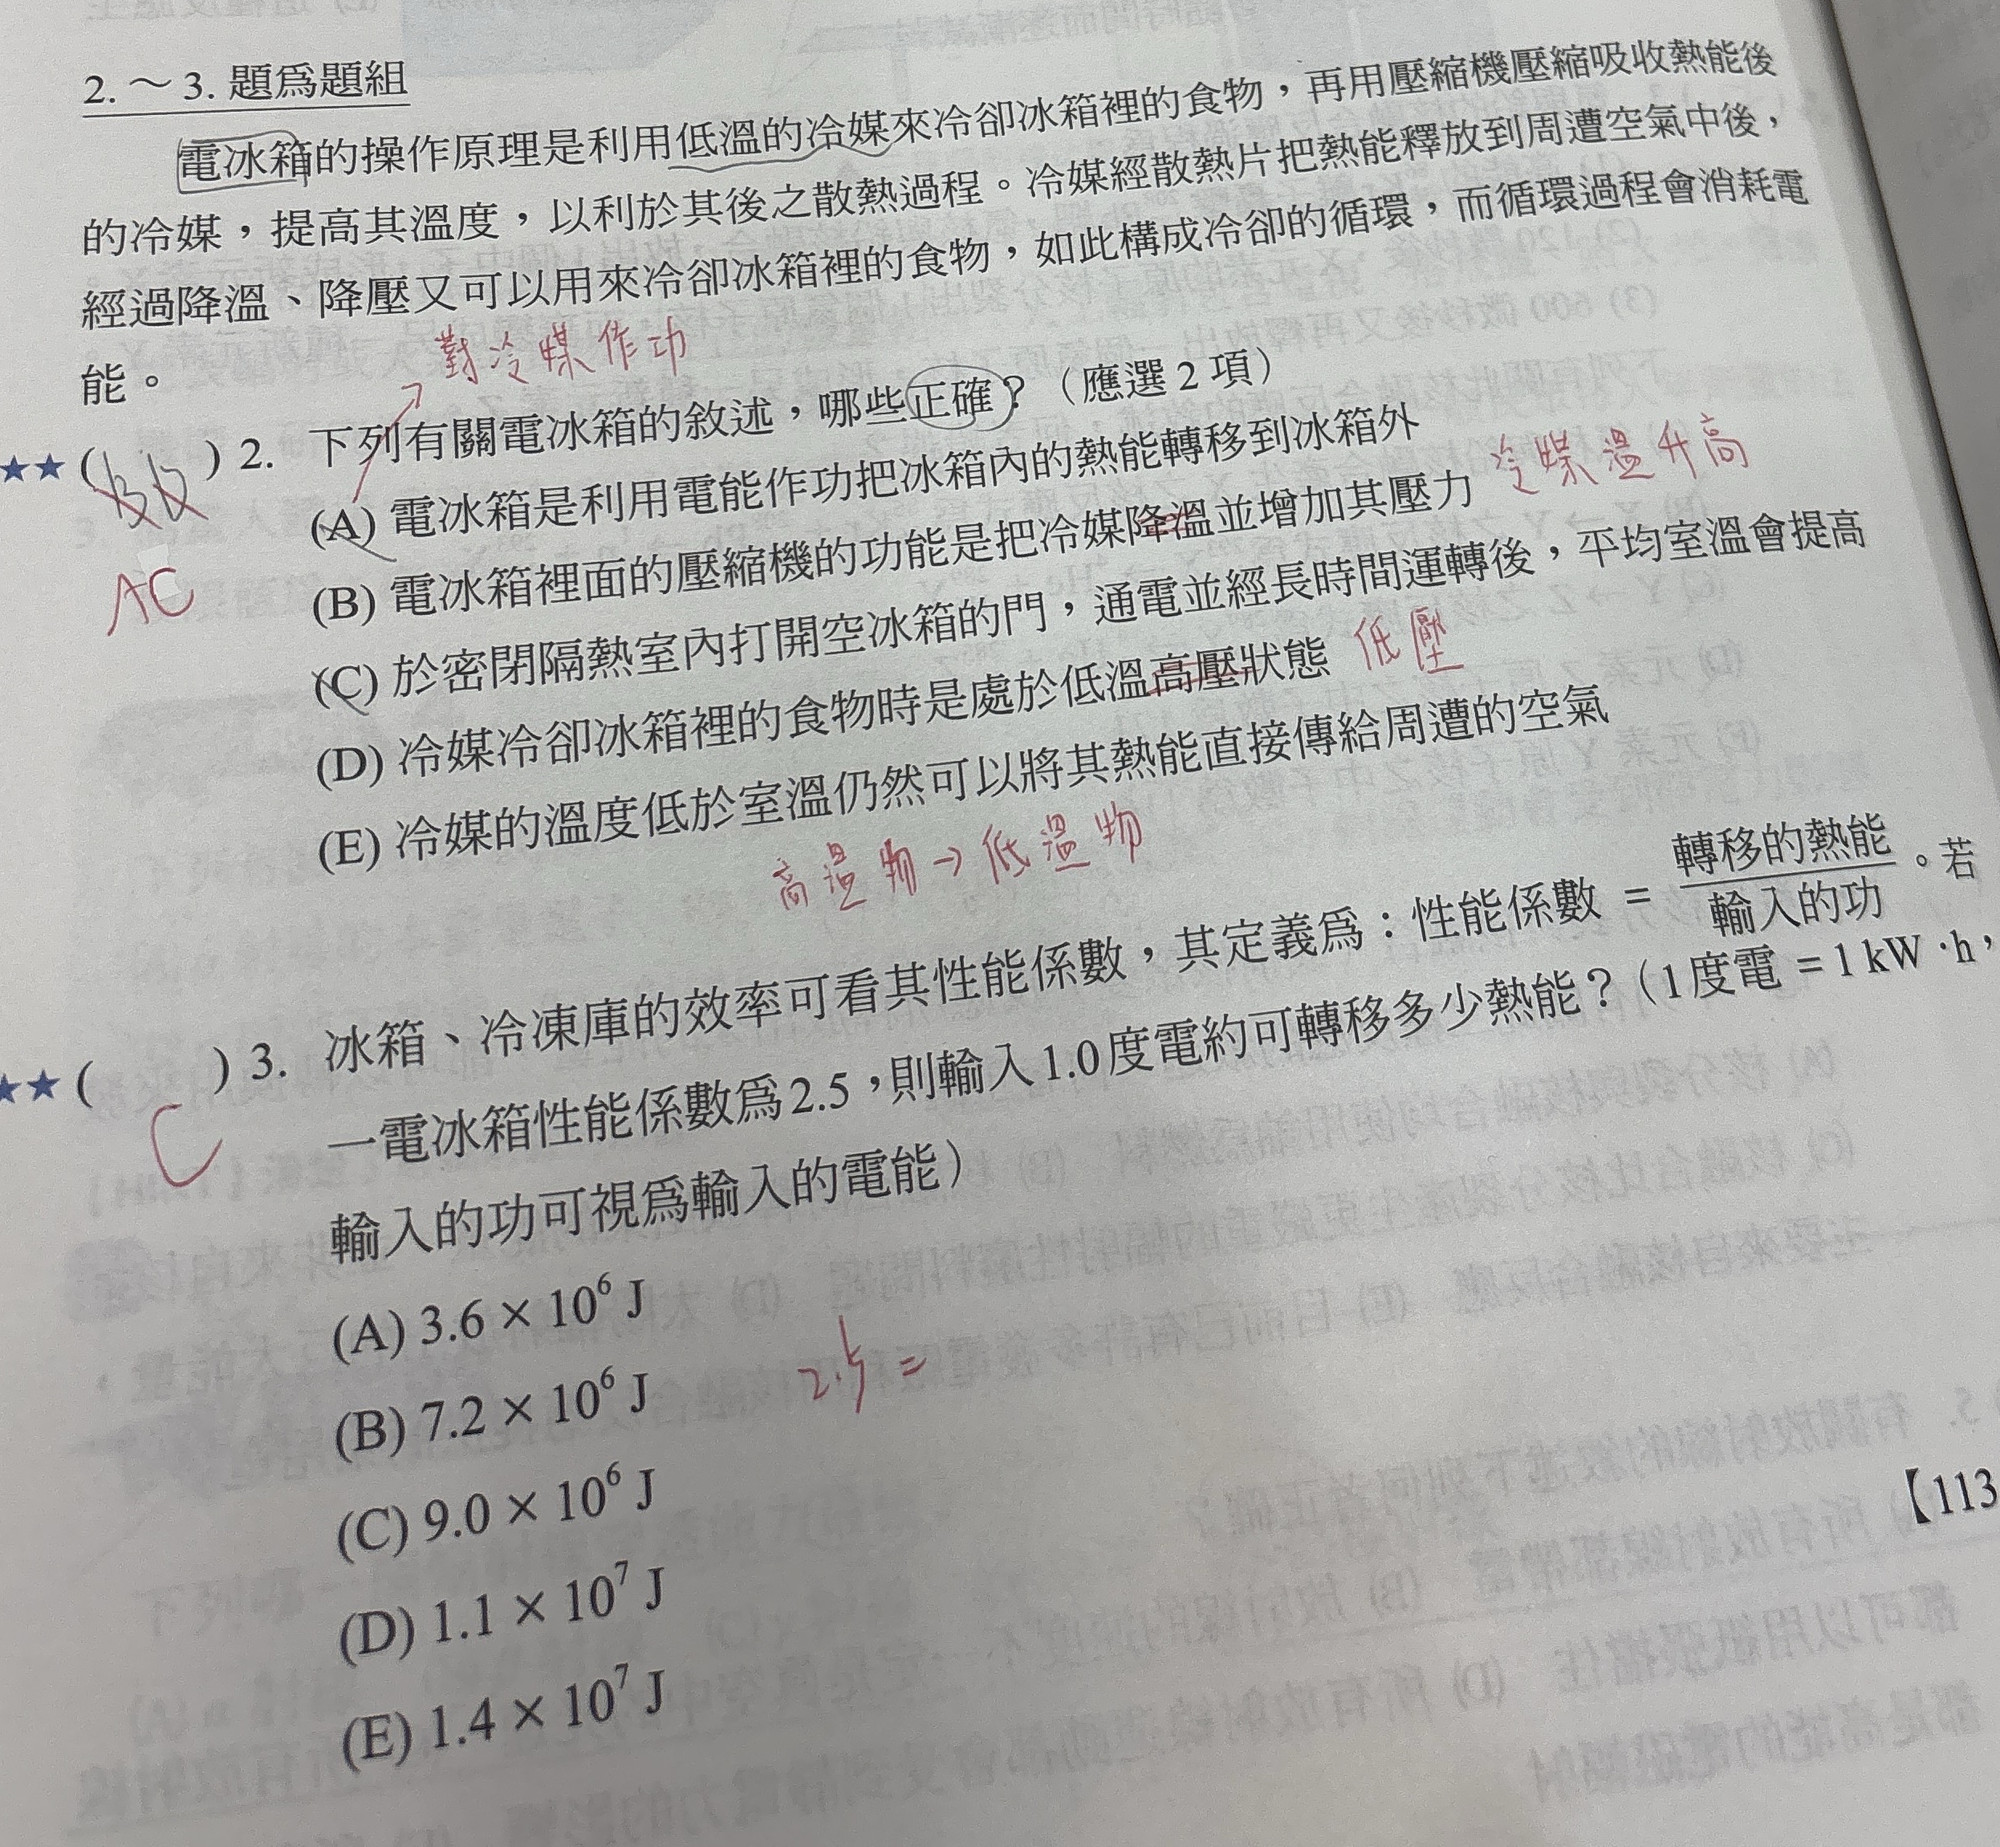 2. ～ 3. 題為題組
電冰箱的操作原理是利用低溫的冷媒來冷卻冰箱裡的食物，再用壓縮機壓縮吸收熱能後
的冷媒，提高其溫度，以利於其後之散熱過程。冷媒經散熱片把熱能釋放到周遭空氣中後，
經過降溫、降壓又可以用來冷卻冰箱裡的食物，如此構成冷卻的循環，而循環過程會消耗電
能。
對冷媒作功
★★ ( ) 2. 下列有關電冰箱的敘述，哪些正確？（應選 2 項）
AC
(A) 電冰箱是利用電能作功把冰箱內的熱能轉移到冰箱外
(B) 電冰箱裡面的壓縮機的功能是把冷媒降溫並增加其壓力 冷媒溫升高
(C) 於密閉隔熱室內打開空冰箱的門，通電並經長時間運轉後，平均室溫會提高
(D) 冷媒冷卻冰箱裡的食物時是處於低溫高壓狀態 低壓
(E) 冷媒的溫度低於室溫仍然可以將其熱能直接傳給周遭的空氣
高溫物→低溫物
★★ ( C ) 3. 冰箱、冷凍庫的效率可看其性能係數，其定義為：性能係數 = 轉移的熱能 / 輸入的功 。若
一電冰箱性能係數為 2.5，則輸入 1.0 度電約可轉移多少熱能？（1 度電 = 1 kW·h，
輸入的功可視為輸入的電能）
(A) 3.6 × 10⁶ J
(B) 7.2 × 10⁶ J
2.5 =
(C) 9.0 × 10⁶ J
(D) 1.1 × 10⁷ J
(E) 1.4 × 10⁷ J
【113